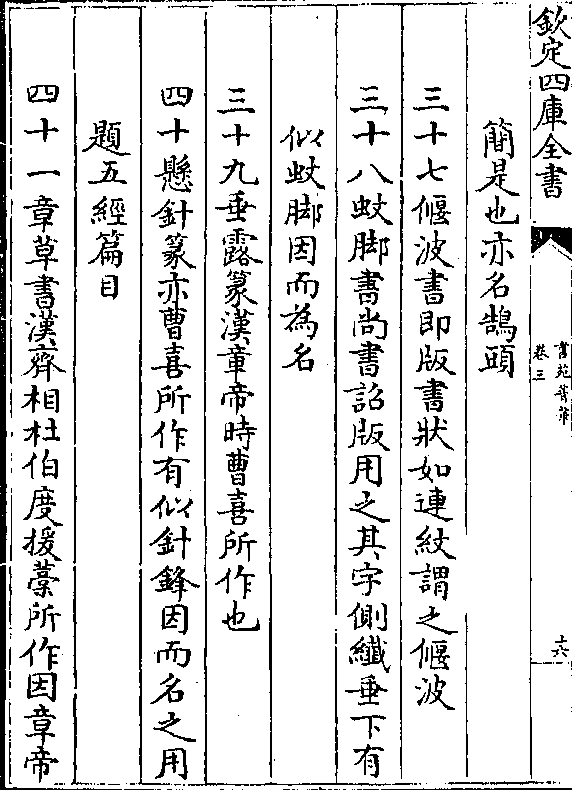 欽定四庫全書
書苑菁華
卷三
十六
簡是也亦名鵠頭
三十七偃波書即版書狀如連紋謂之偃波
三十八蚊脚書尚書詔版用之其字側纖垂下有
似蚊脚因而為名
三十九垂露篆漢章帝時曹喜所作也
四十懸針篆亦曹喜所作有似針鋒因而名之用
題五經篇目
四十一章草書漢齊相杜伯度援藁所作因章帝